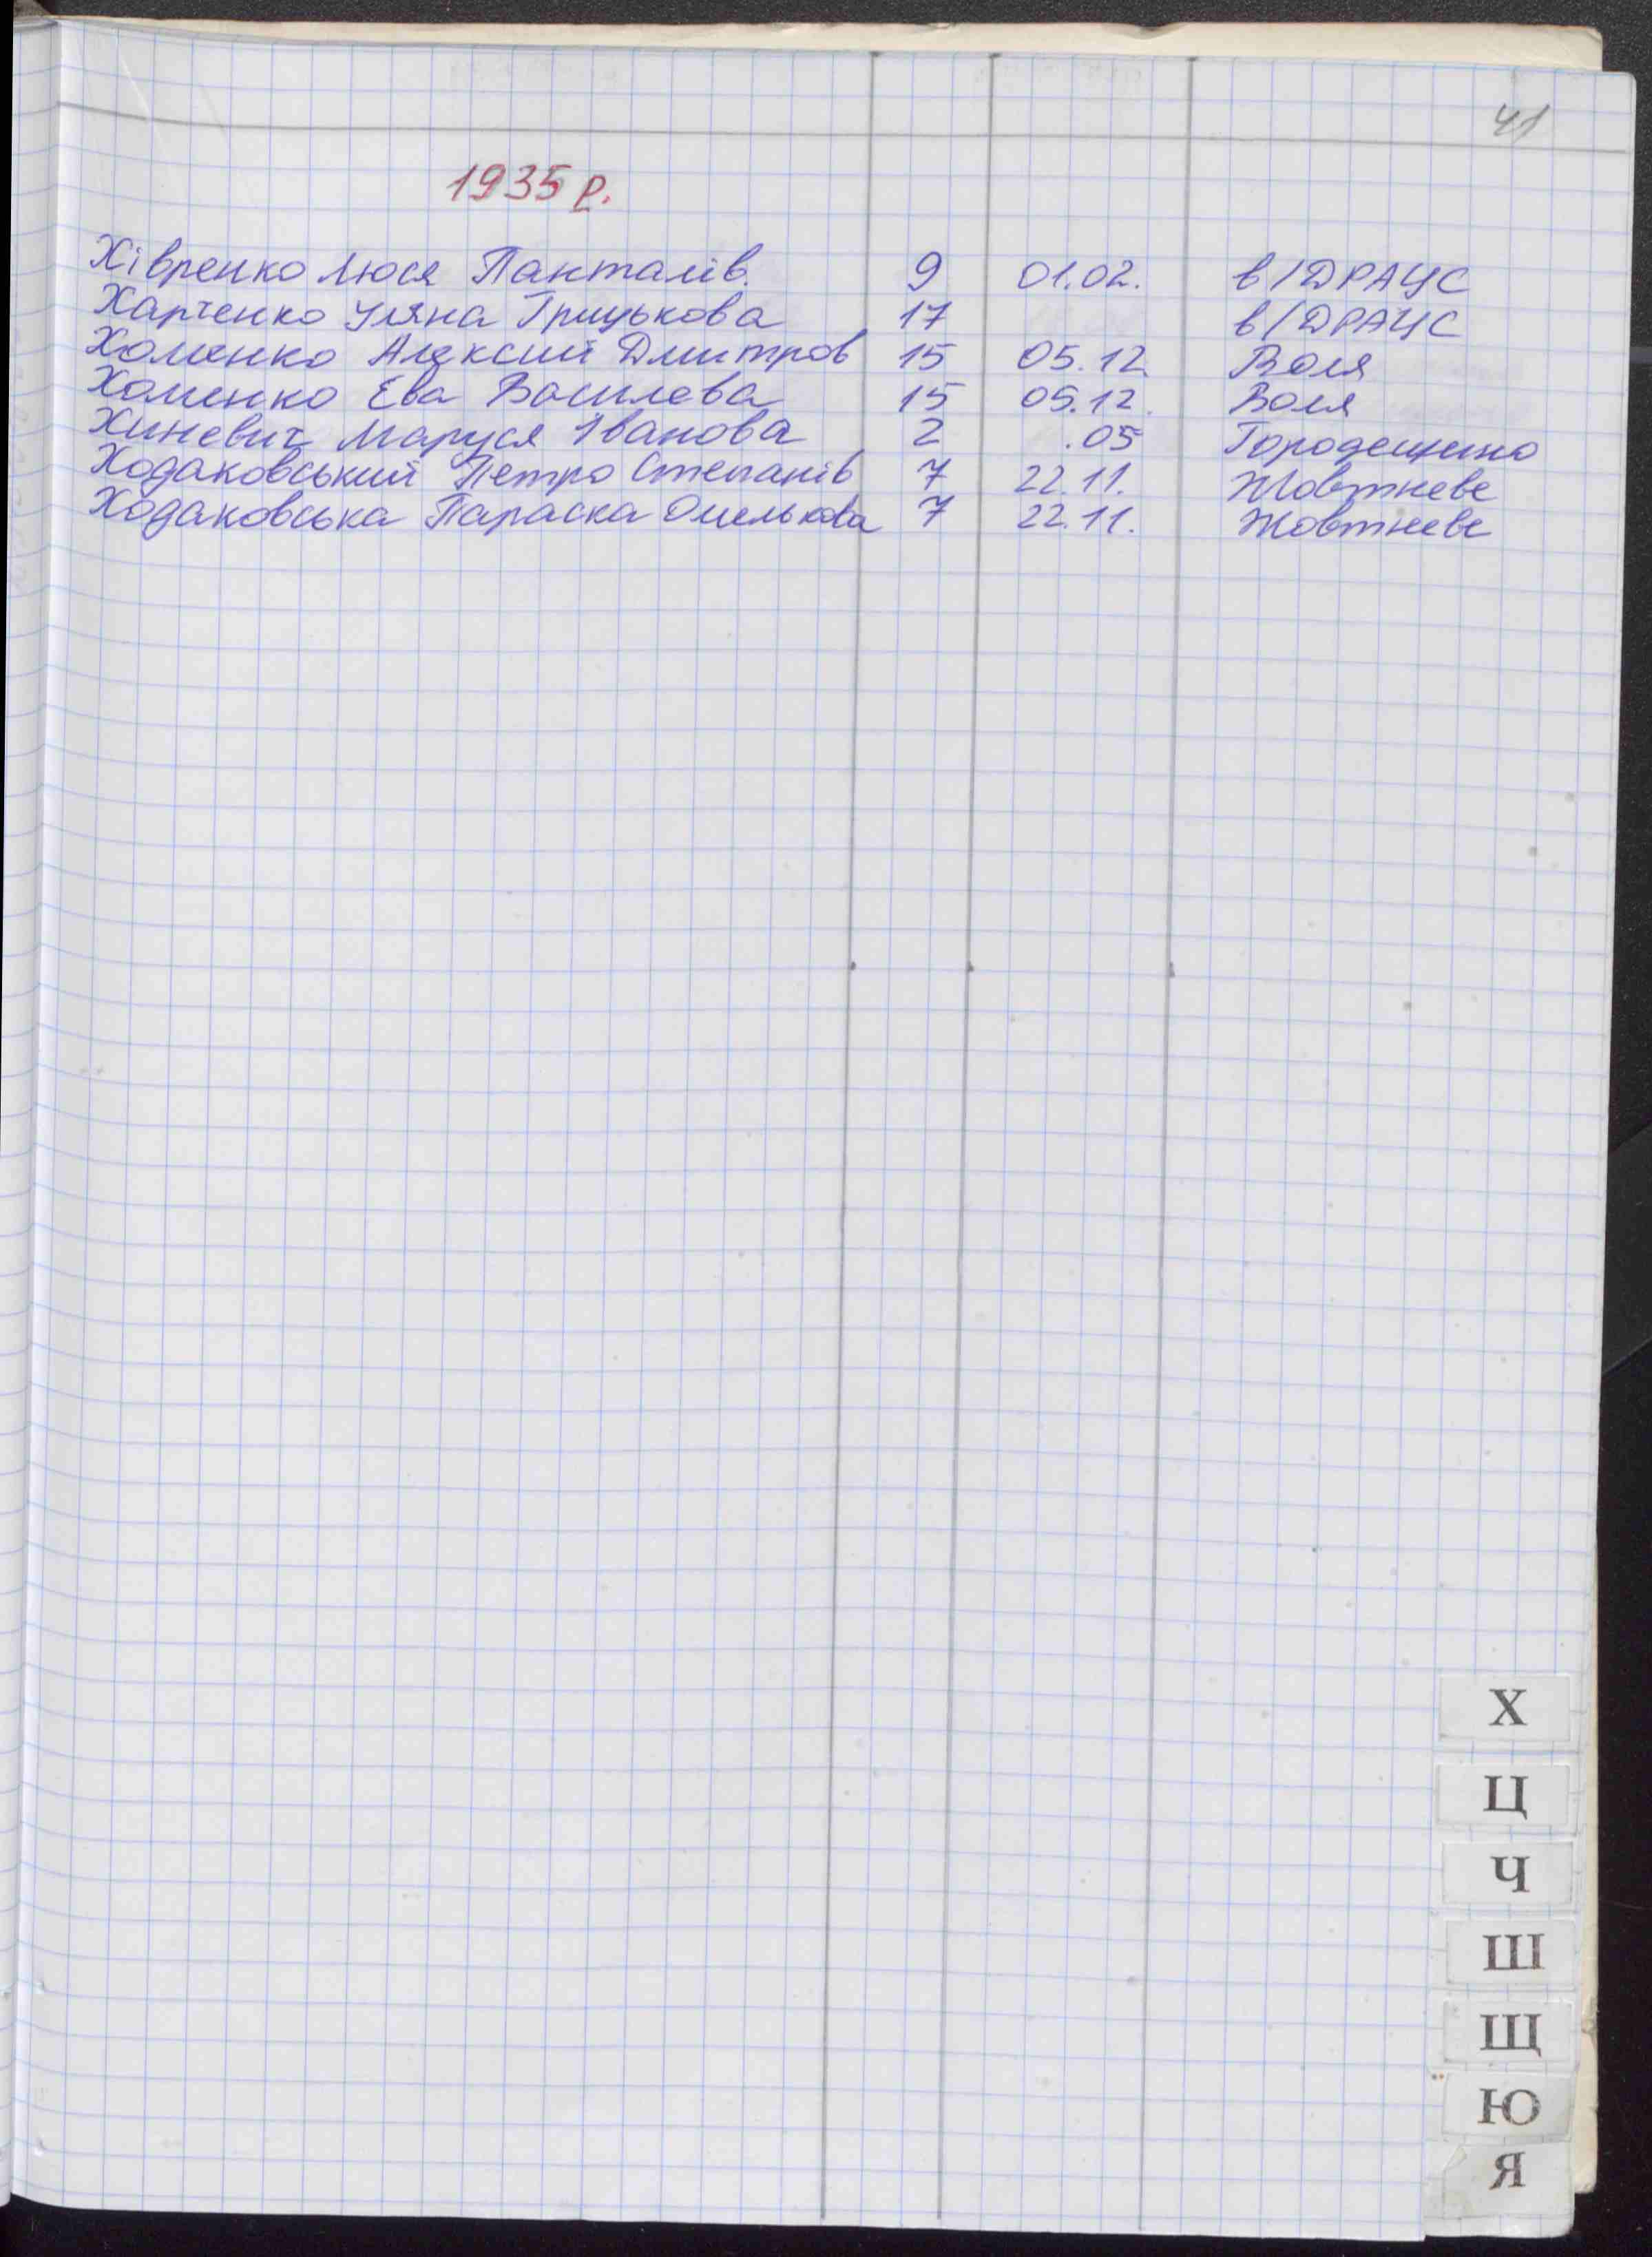 41
1935 р.
Хівренко Люся Панталів. 9 01.02. в/ДРАЦС
Харченко Уляна Грицькова 17 в/ДРАЦС
Хоменко Алексий Дмитров 15 05.12. Воля
Хоменко Ева Василева 15 05.12. Воля
Хиневич Маруся Іванова 2 .05 Городещино
Ходаковський Петро Степанів 7 22.11. Жовтневе
Ходаковська Параска Омелькова 7 22.11. Жовтневе
Х
Ц
Ч
Ш
Щ
Ю
Я